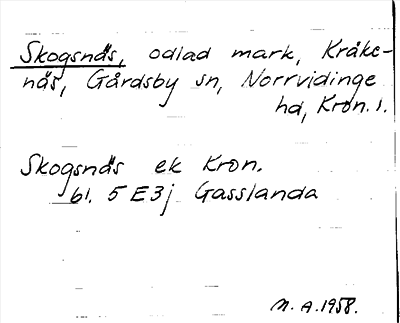 Skogsnäs, odlad mark, Kråke-
näs, Gårdsby sn, Norrvidinge
hd, Kron. l.
Skogsnäs ek Kron.
bl. 5 E 3j Gasslanda
M. A. 1958.